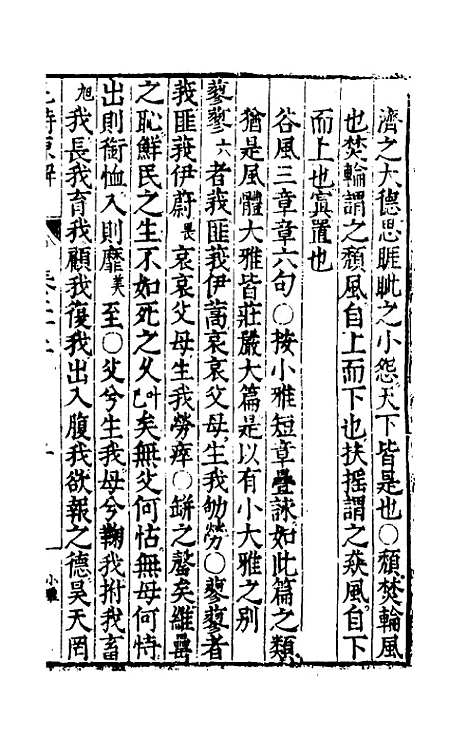 濟之大德思睚眦之小怨天下皆是也○頹焚輪風
也焚輪謂之頹風自上而下也扶摇謂之猋風自下
而上也寘置也
谷風三章章六句○按小雅短章疊詠如此篇之類
猶是風體大雅皆莊嚴大篇是以有小大雅之别
蓼蓼六者莪匪莪伊蒿哀哀父母生我劬勞○蓼蓼者
莪匪莪伊蔚畏哀哀父母生我勞瘁○缾之罄矣維罍
之恥鮮民之生不如死之久叶已矣無父何怙無母何恃
出則銜恤入則靡美至○父兮生我母兮鞠我拊我畜
旭我長我育我顧我復我出入腹我欲報之德昊天罔
小雅